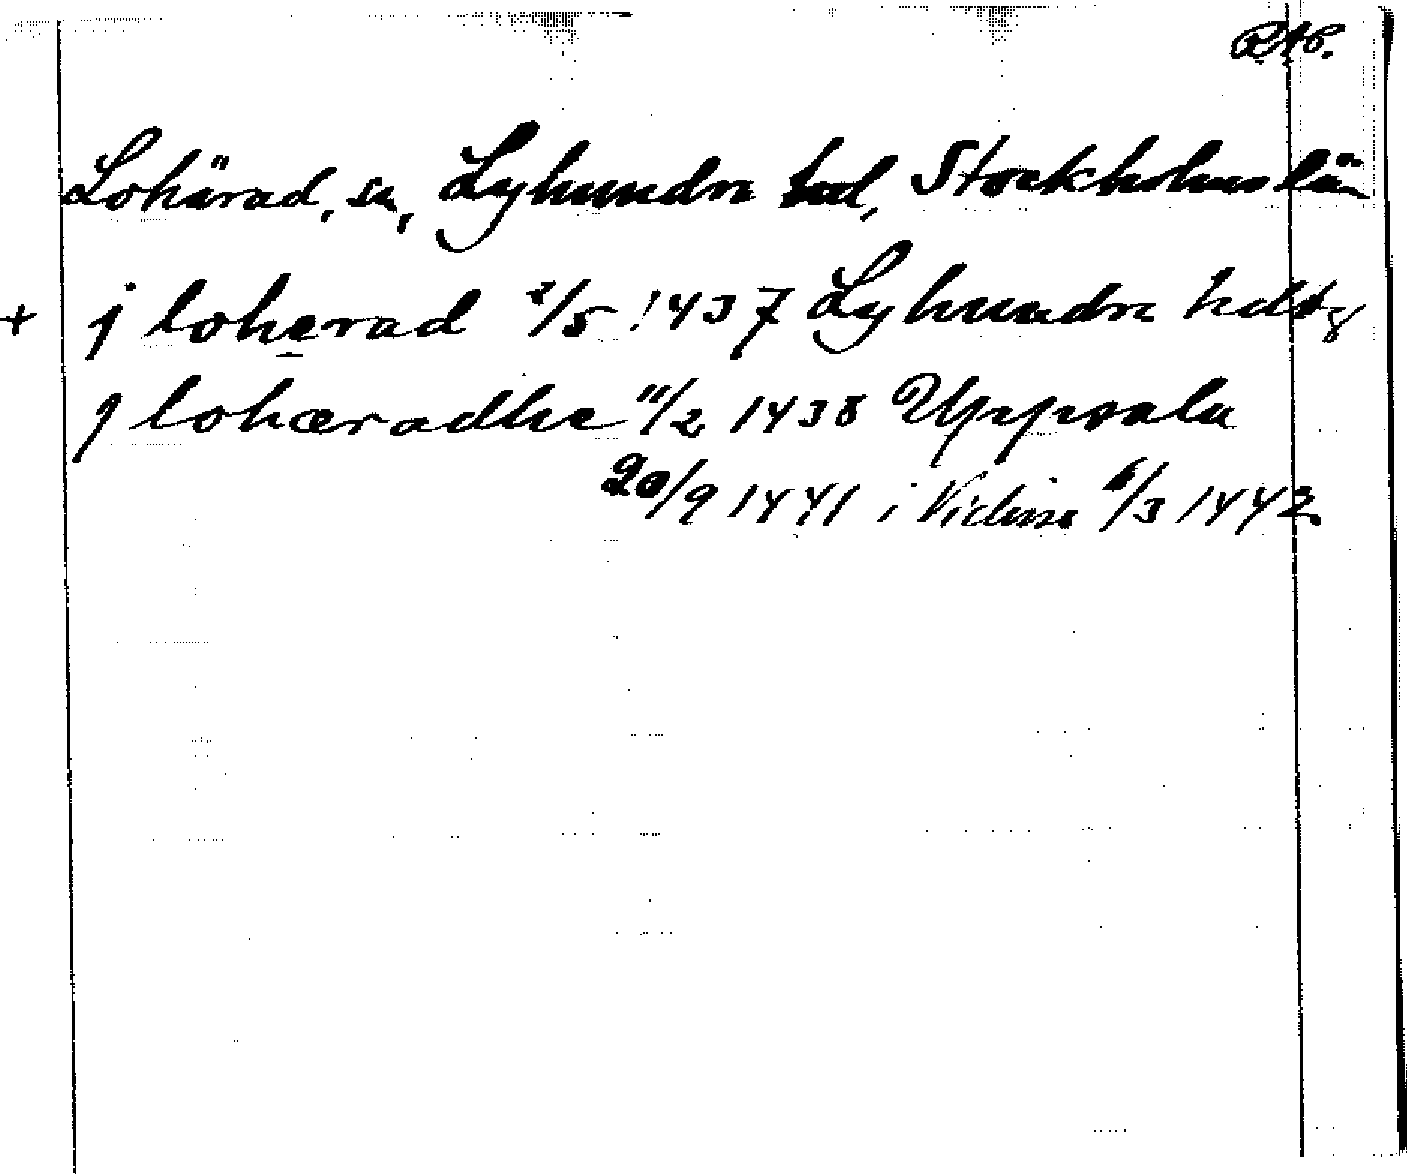 RAP.
Lohärad, sn, Lyhundra hd, Stockholms län
+ j loherad 2/5 1437 Lyhundra hdtg
j lohæradhe 11/2 1438 Uppsala
20/9 1441 i Vidim 6/3 1442